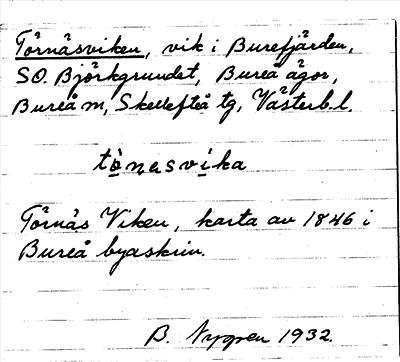 Törnäsviken, vik i Burefjärden,
SO. Björkgrundet, Bureå ägor,
Bureå m, Skellefteå tg, Västerb. l.
tò̱nasvi̱ka
Törnäs Viken, karta av 1846 i
Bureå byaskrin.
B. Nygren 1932.